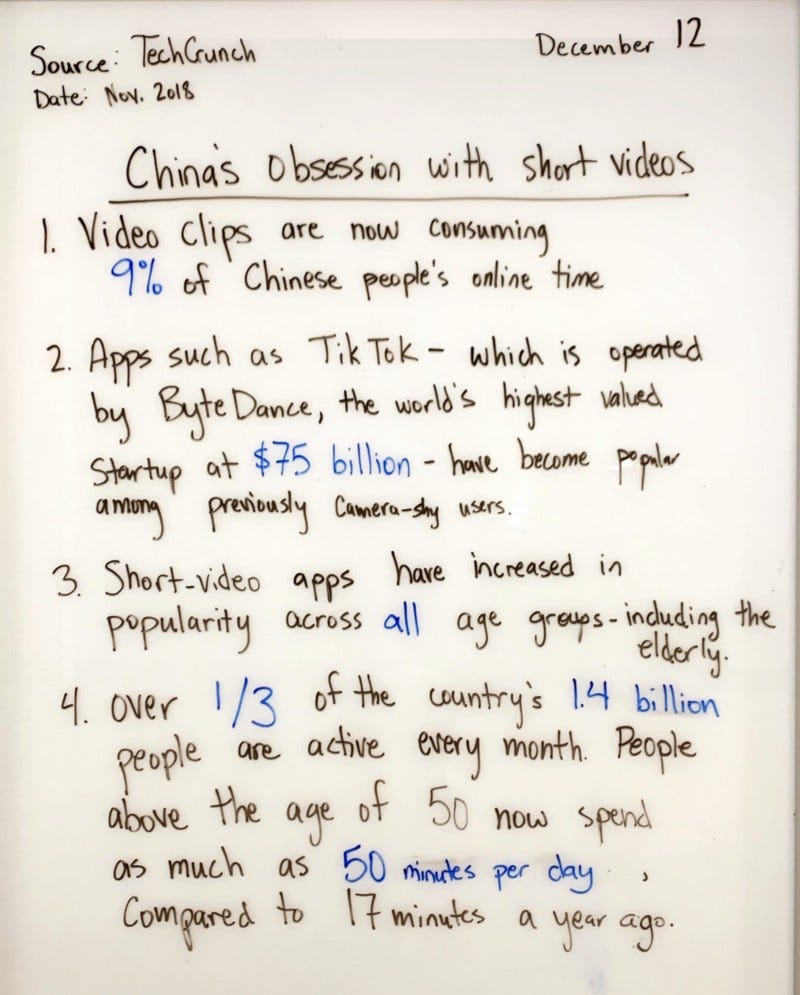 Source: TechCrunch
December 12
Date: Nov. 2018
China's Obsession with short videos
1. Video clips are now consuming
9% of Chinese people's online time
2. Apps such as TikTok - which is operated
by ByteDance, the world's highest valued
startup at $75 billion - have become popular
among previously camera-shy users.
3. Short-video apps have increased in
popularity across all age groups - including the
elderly.
4. Over 1/3 of the country's 1.4 billion
people are active every month. People
above the age of 50 now spend
as much as 50 minutes per day,
Compared to 17 minutes a year ago.